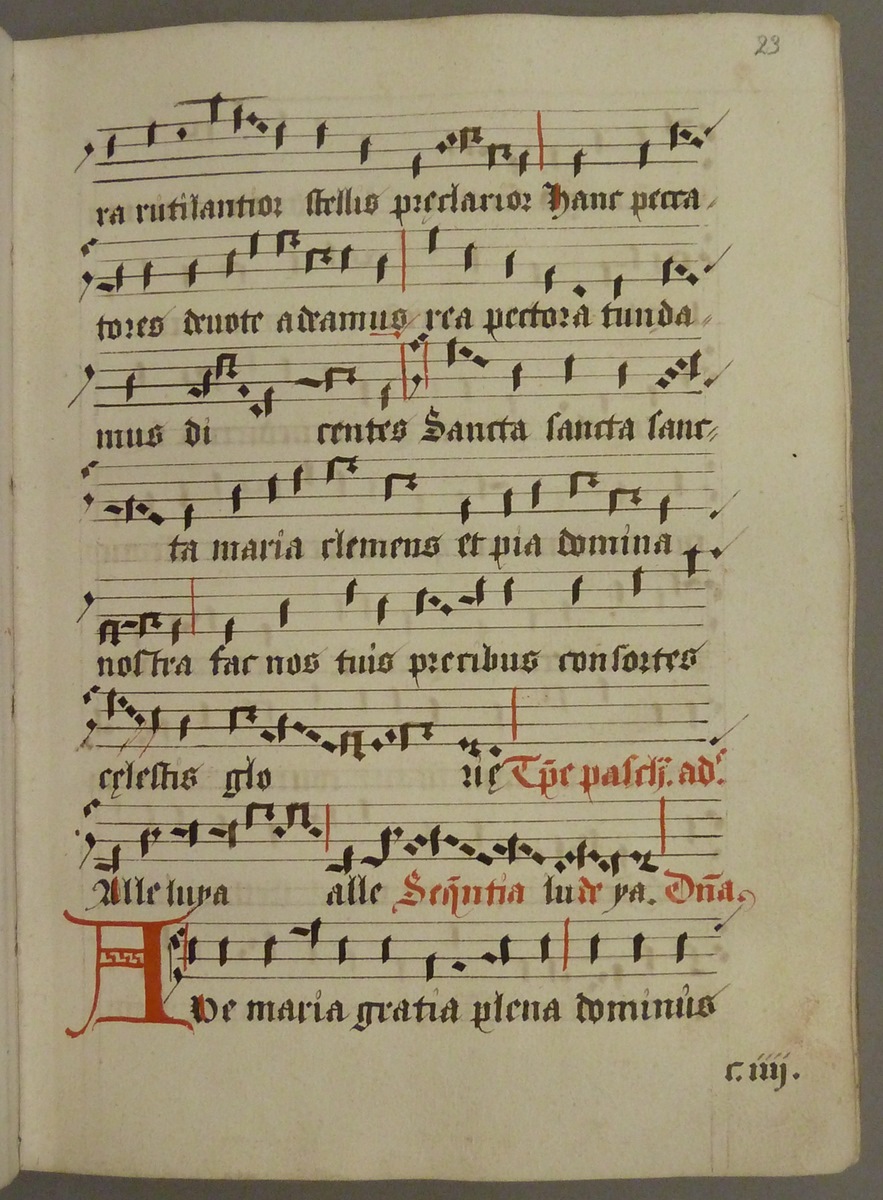 23
ra rutilantior stellis pręclarior Hanc pecca
tores deuote adeamus rea pectora tunda
mus di centes Sancta sancta sanc
ta maria clemens et pia domina
nostra fac nos tuis precibus consortes
cęlestis glo rię Tp̄e pasch. ad
Alle luya alle Seq̄ntia lu de ya. Dn̄a
Ave maria gratia plena dominus
c. iiij.